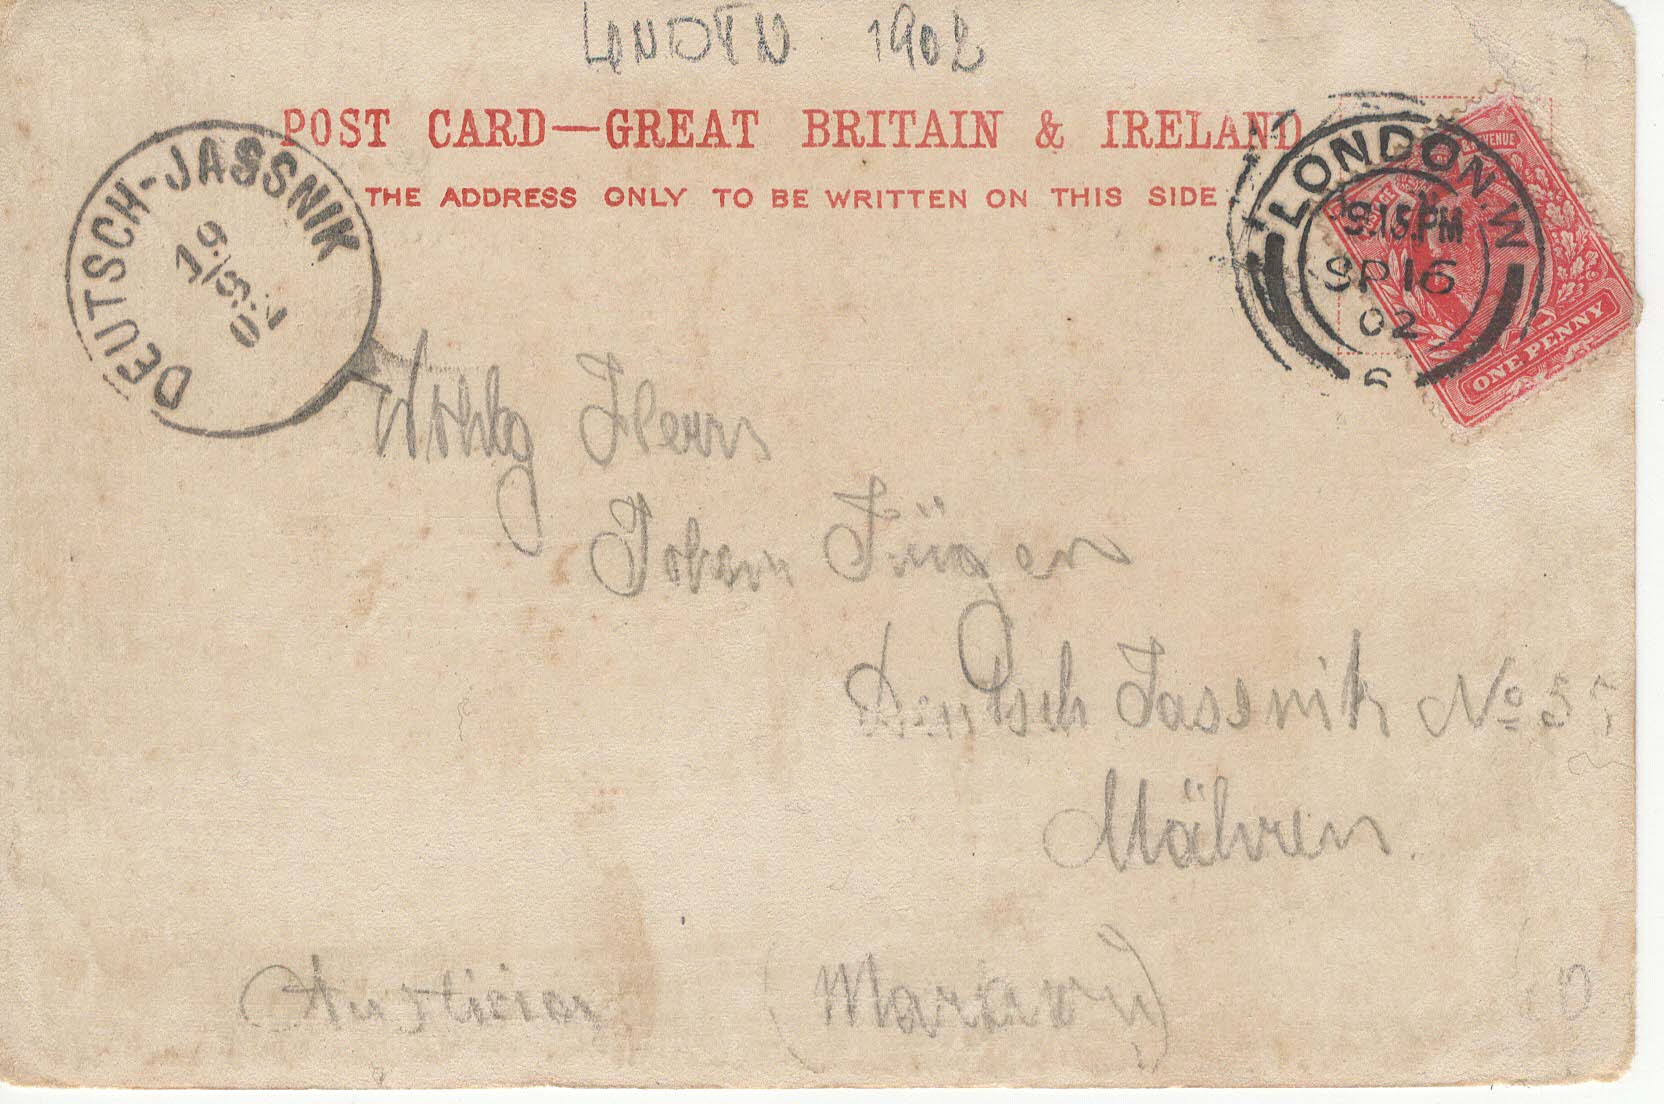 LONDYN 1902
POST CARD—GREAT BRITAIN & IRELAND
THE ADDRESS ONLY TO BE WRITTEN ON THIS SIDE
DEUTSCH-JASSNIK
19/9.02
LONDON.W
9.15.PM
SP 16
02
REVENUE
ONE PENNY
Wohlg Herrn
Johann
Deutsch Jassnik No 57
Mähren